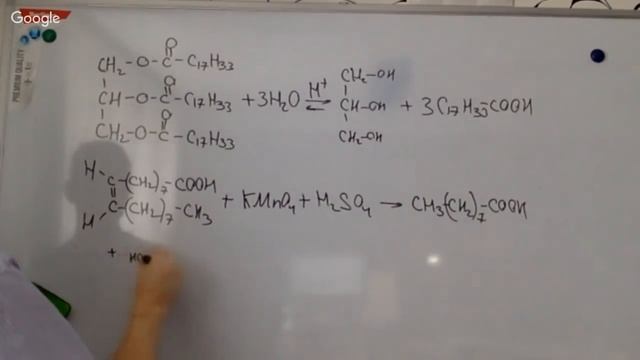 Google
PREMIUM QUALITY
O O O
CH₂-O-C-C₁₇H₃₃
CH-O-C-C₁₇H₃₃ + 3H₂O ⇌ H⁺ CH₂-OH CH-OH CH₂-OH + 3C₁₇H₃₃-COOH
CH₂-O-C-C₁₇H₃₃
H C-(CH₂)₇-COOH
H C-(CH₂)₇-CH₃ + KMnO₄ + H₂SO₄ → CH₃(CH₂)₇-COOH
+ HO